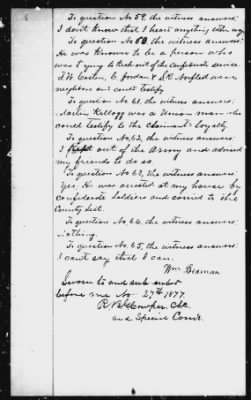 To question No 59, the witness answers:
I don't know that I heard anything
To question No 60, the witness answers:
He was known to be a person who
was trying to keep out of the Confederate service
J W Costen, C. Jordan & S R Norfleet were
neighbors and could testify
To question No 61, the witness answers:
Martin Kellogg was a Union man who
could testify to the claimant's loyalty
To question No 62, the witness answers:
I kept out of the Army and advised
my friends to do so.
To question No 63, the witness answers:
Yes. He was arrested at my house by
confederate soldiers and carried to the
County seat.
To question No. 64, the witness answers:
nothing.
To question No. 65, the witness answers:
I can't say that I can.
Wm Beaman
Sworn to and sub scribed
before me Nov 27th 1877
R. B. Cowper
and Special Com'r.